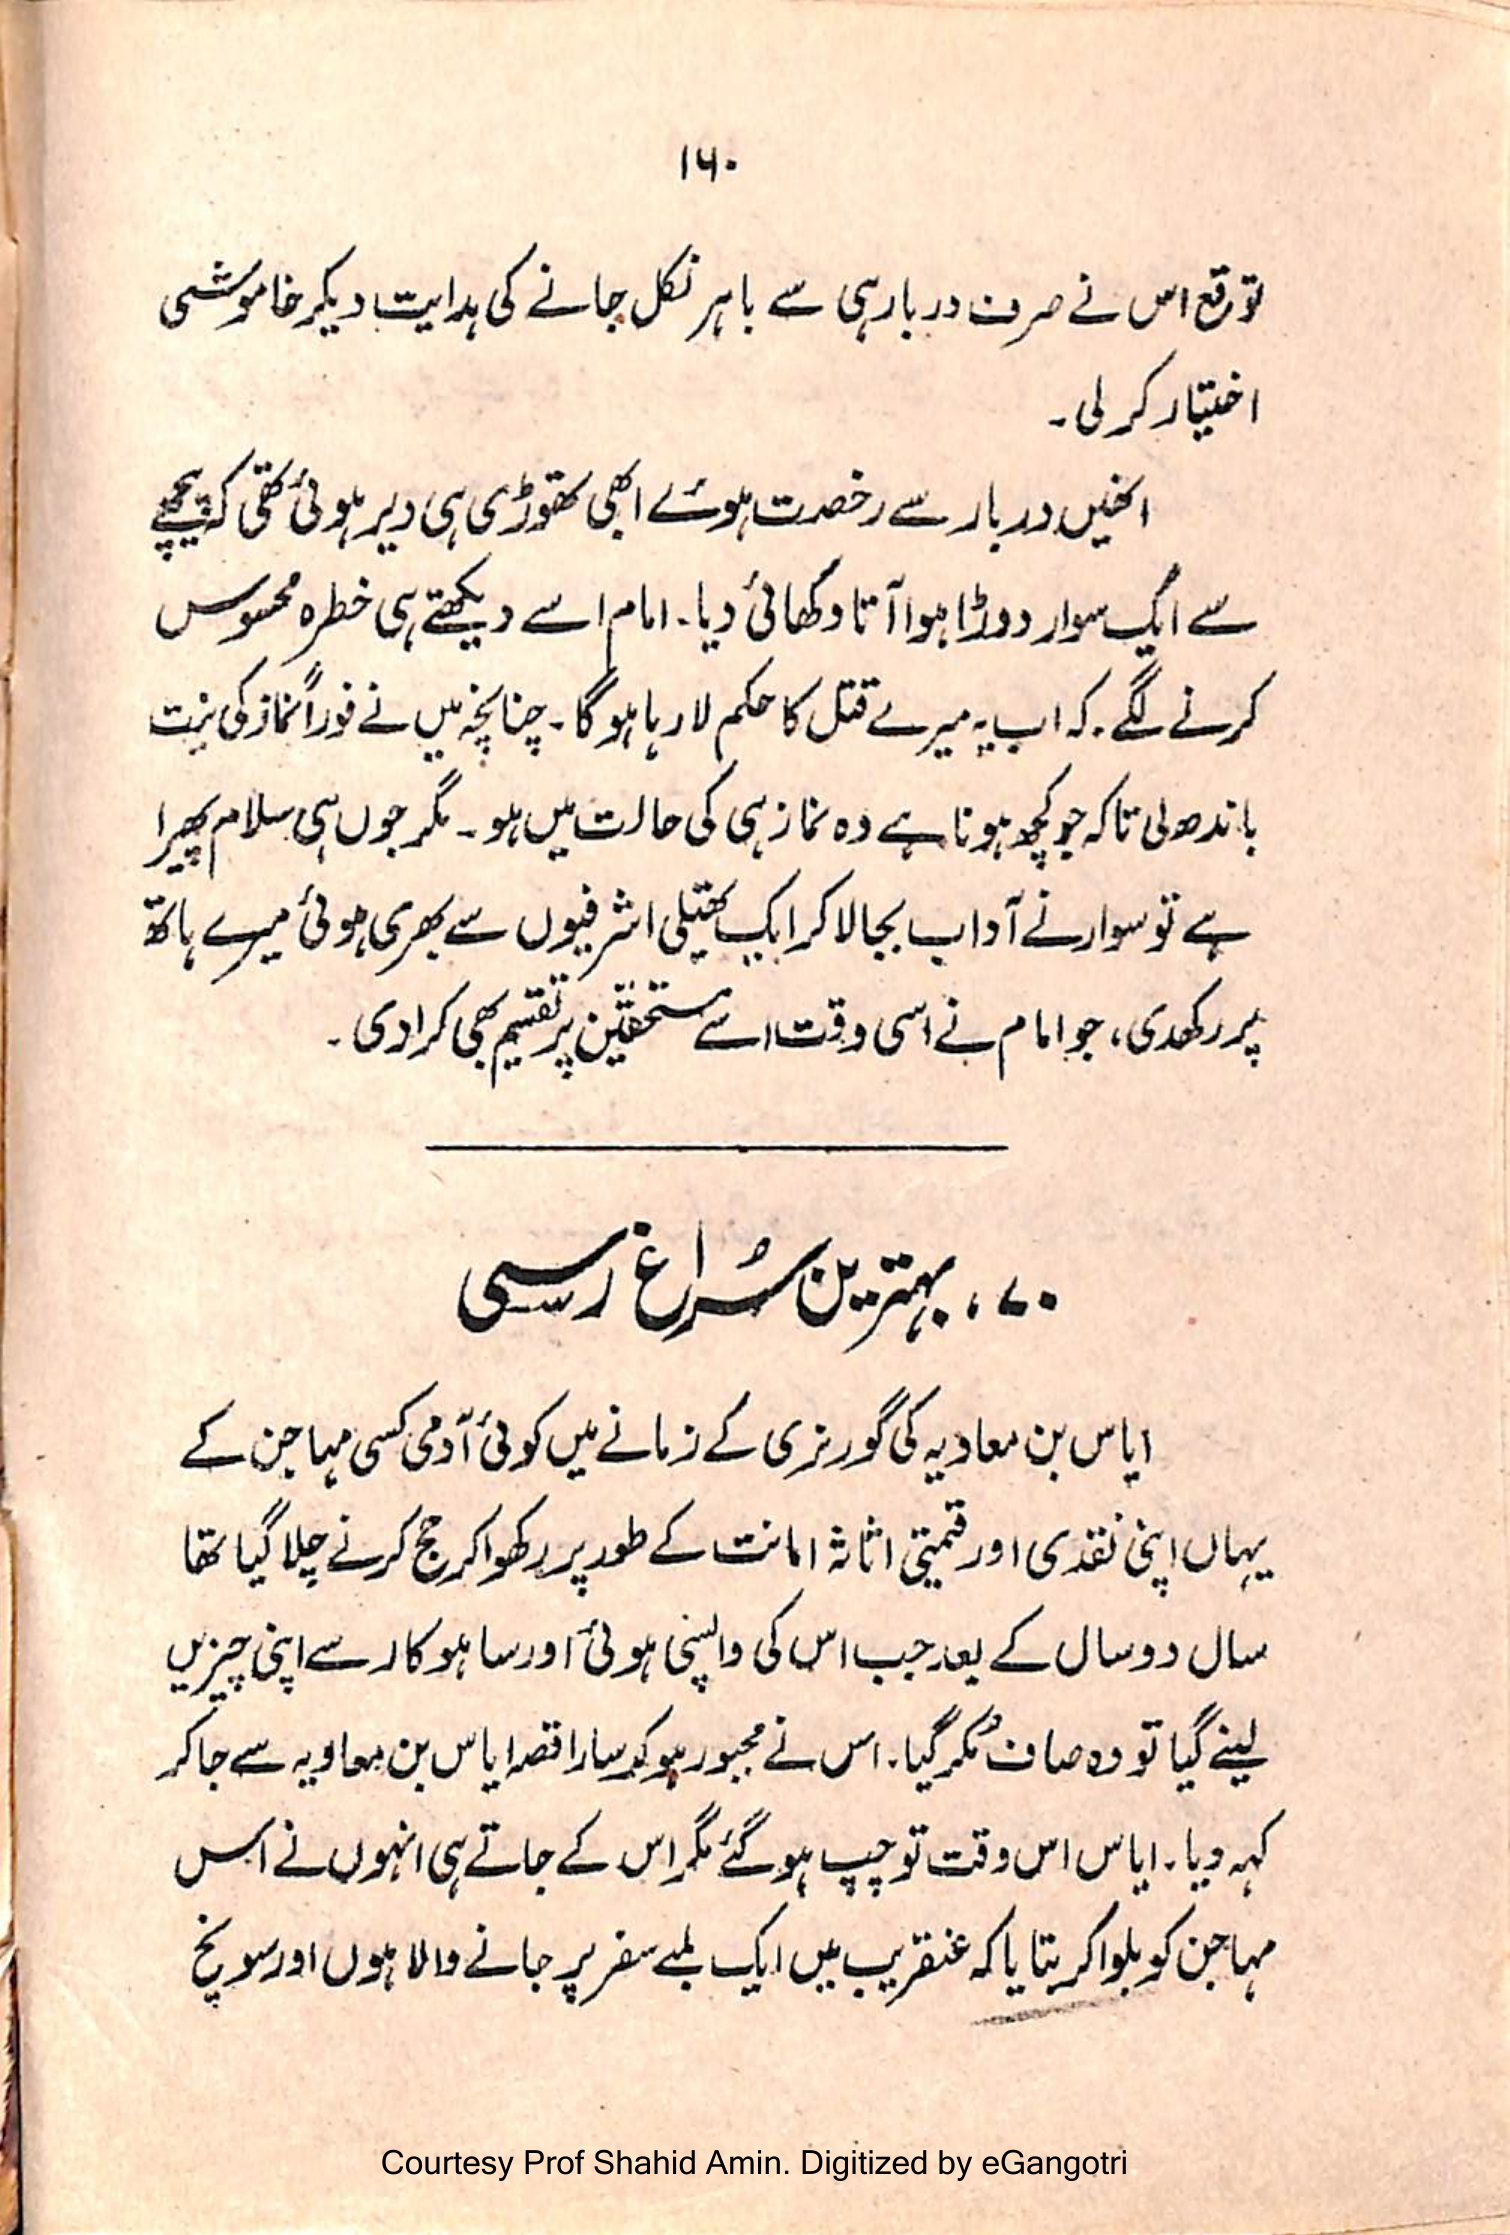 ۱۶۰
توقع اس نے صرف دربار ہی سے باہر نکل جانے کی ہدایت دیکر خاموشی
اختیار کر لی۔
انھیں دربار سے رخصت ہوئے ابھی تھوڑی ہی دیر ہوئی تھی کہ پیچھے
سے ایک سوار دوڑا ہوا آتا دکھائی دیا۔ امام اسے دیکھتے ہی خطرہ محسوس
کرنے لگے۔ کہ اب یہ میرے قتل کا حکم لا رہا ہو گا۔ چنانچہ میں نے فوراً نماز کی نیت
باندھ لی تاکہ جو کچھ ہونا ہے وہ نماز ہی کی حالت میں ہو۔ مگر جوں ہی سلام پھیرا
ہے تو سوار نے آداب بجا لا کر ایک تھیلی اشرفیوں سے بھری ہوئی میرے ہاتھ
پر رکھدی، جو امام نے اسی وقت اسے مستحقین پر تقسیم بھی کرا دی۔
۷۰، بہترین سُراغ رسی
ایاس بن معاویہ کی گورنری کے زمانے میں کوئی آدمی کسی مہاجن کے
یہاں اپنی نقدی اور قیمتی اثاثہ امانت کے طور پر رکھوا کر حج کرنے چلا گیا تھا
سال دو سال کے بعد جب اس کی واپسی ہوئی اور ساہوکار سے اپنی چیزیں
لینے گیا تو وہ صاف مُکر گیا۔ اس نے مجبور ہو کر سارا قصہ ایاس بن معاویہ سے جا کر
کہہ دیا۔ ایاس اس وقت تو چپ ہو گئے مگر اس کے جاتے ہی انہوں نے اس
مہاجن کو بلوا کر بتایا کہ عنقریب میں ایک لمبے سفر پر جانے والا ہوں اور سونچ
Courtesy Prof Shahid Amin. Digitized by eGangotri